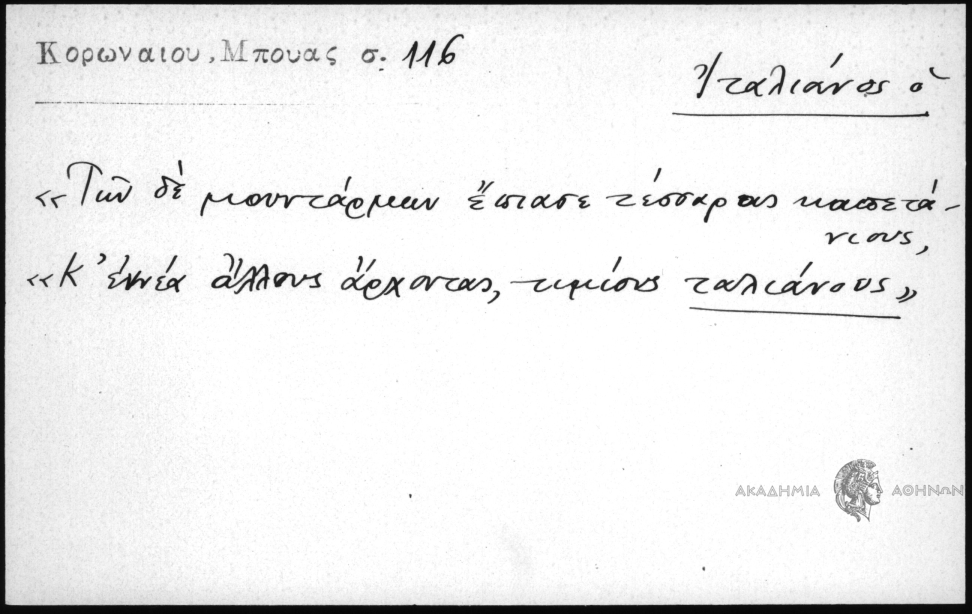 Κορωναιου, Μπουας σ. 116
Ἰταλιάνος ὁ
«Τῶν δὲ μουντάρμων ἔπιασε τέσσαρας καπετά-
νιους,
«Κ' ἐννέα ἄλλους ἄρχοντας, τιμίους ταλιάνους»
ΑΚΑΔΗΜΙΑ ΑΘΗΝΩΝ